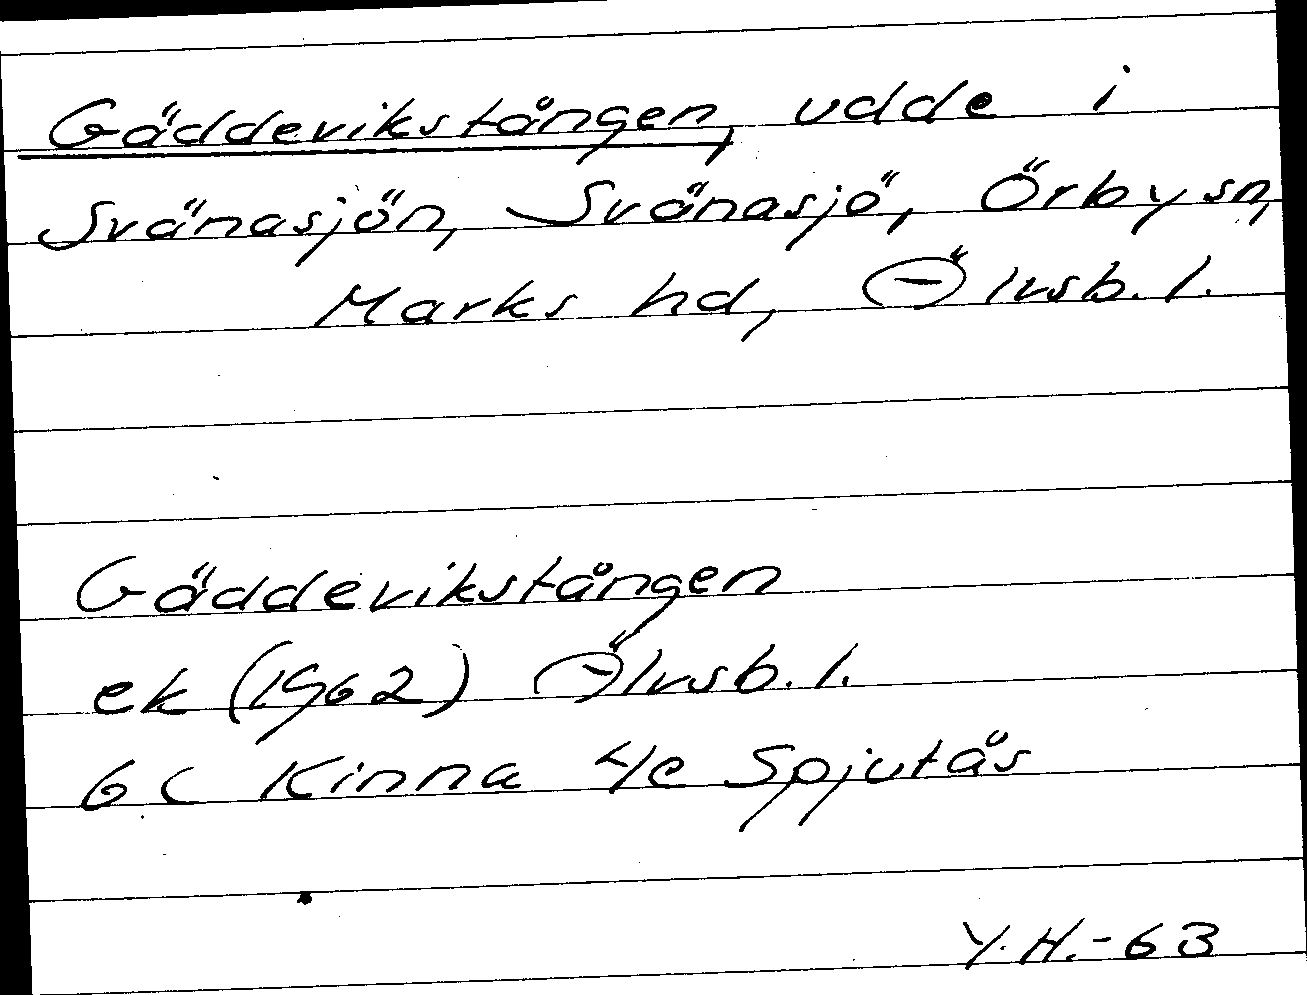 Gäddevikstången, udde i
Svänasjön, Svänasjö, Örby sn,
Marks hd, Älvsb. l.
Gäddevikstången
ek (1962) Älvsb. l.
6 C Kinna 4e Spjutås
Y. H. -63